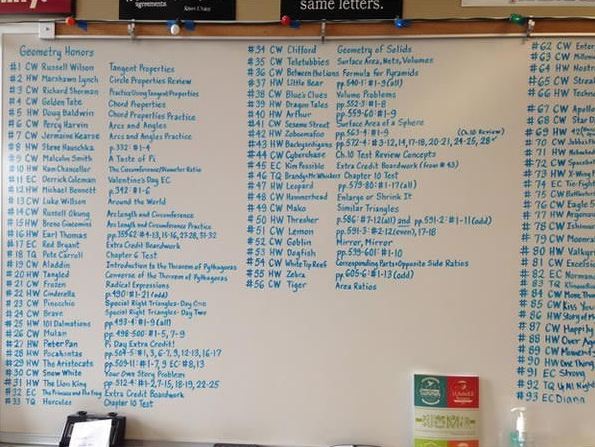 agreements.
same letters.
Geometry Honors
#1 CW Russell Wilson Tangent Properties
#2 HW Marshawn Lynch Circle Properties Review
#3 CW Richard Sherman Practice Using Tangent Properties
#4 CW Golden Tate Chord Properties
#5 HW Doug Baldwin Chord Properties Practice
#6 CW Percy Harvin Arcs and Angles
#7 CW Jermaine Kearse Arcs and Angles Practice
#8 HW Steve Hauschka pp.332: #1-4
#9 CW Malcolm Smith A Taste of Pi
#10 HW Kam Chancellor The Circumference/Diameter Ratio
#11 EC Derrick Coleman Valentine's Day EC
#12 HW Michael Bennett p.342: #1-6
#13 CW Luke Willson Around the World
#14 CW Russell Okung Arc Length and Circumference
#15 HW Breno Giacomini Arc Length and Circumference Practice
#16 HW Earl Thomas
#17 EC Red Bryant Extra Credit Boardwork
#18 TQ Pete Carroll Chapter 6 Test
#19 CW Aladdin Introduction to the Theorem of Pythagoras
#20 HW Tangled Converse of the Theorem of Pythagoras
#21 CW Frozen Radical Expressions
#22 HW Cinderella p.490: #1-21 (odd)
#23 CW Pinocchio Special Right Triangles- Day One
#24 CW Brave Special Right Triangles- Day Two
#25 HW 101 Dalmatians pp.493-4: #1-9 (all)
#26 CW Mulan pp. 498-500: #1-5, 7-9
#27 HW Peter Pan Pi Day Extra Credit!
#28 HW Pocahontas pp.504-5: #1, 3, 6-7, 9, 12-13, 16-17
#29 HW The Aristocats pp.509-11: #1-7, 9 EC #8, 13
#30 CW Snow White Your Own Story Problem
#31 HW The Lion King pp. 512-4: #1-2, 7-15, 18-19, 22-25
#32 EC The Princess and The Frog Extra Credit Boardwork
#33 TQ Hercules Chapter 10 Test
#34 CW Clifford Geometry of Solids
#35 CW Teletubbies Surface Area, Nets, Volumes
#36 CW Between the Lions Formula for Pyramids
#37 HW Little Bear pp.540-1: #1-9 (all)
#38 CW Blue's Clues Volume Problems
#39 HW Dragon Tales pp.552-3: #1-8
#40 HW Arthur pp.559-60: #1-9
#41 CW Sesame Street Surface Area of a Sphere
#42 HW Zoboomafoo pp.563-4: #1-9 (Ch.10 Review)
#43 HW Backyardigans pp.572-4: #3-12, 14, 17-18, 20-21, 24-25, 28
#44 CW Cyberchase Ch.10 Test Review Concepts
#45 EC Kim Possible Extra Credit Boardwork (from #43)
#46 TQ Brandy & Mr Whiskers Chapter 10 Test
#47 HW Leopard pp.579-80: #1-17 (all)
#48 CW Hammerhead Enlarge or Shrink It
#49 CW Mako Similar Triangles
#50 HW Thresher pp.586: #7-12 (all) and pp.591-2: #1-11 (odd)
#51 CW Lemon pp.591-3: #2-12 (even), 17-18
#52 CW Goblin Mirror, Mirror
#53 HW Dogfish pp.599-601: #1-10
#54 CW White Tip Reef Corresponding Parts+Opposite Side Ratios
#55 HW Zebra pp.605-6: #1-13 (odd)
#56 CW Tiger Area Ratios
#62 CW Enter
#63 CW
#64 HW
#65 CW
#66 HW
#67 CW Apollo
#68 CW Star
#69 HW
#70 CW
#71 HW
#72 CW
#73 HW X-Wing
#74 EC Tie-Fight
#75 CW
#76 CW Eagle 5
#77 HW
#78 CW
#79 CW
#80 HW
#81 CW
#82 EC
#83 TQ
#84 CW
#85 CW Kiss You
#86 HW Story of
#87 CW
#88 HW Over Again
#89 CW
#90 HW One Thing
#91 EC Strong
#92 TQ Up All Night
#93 EC Diana